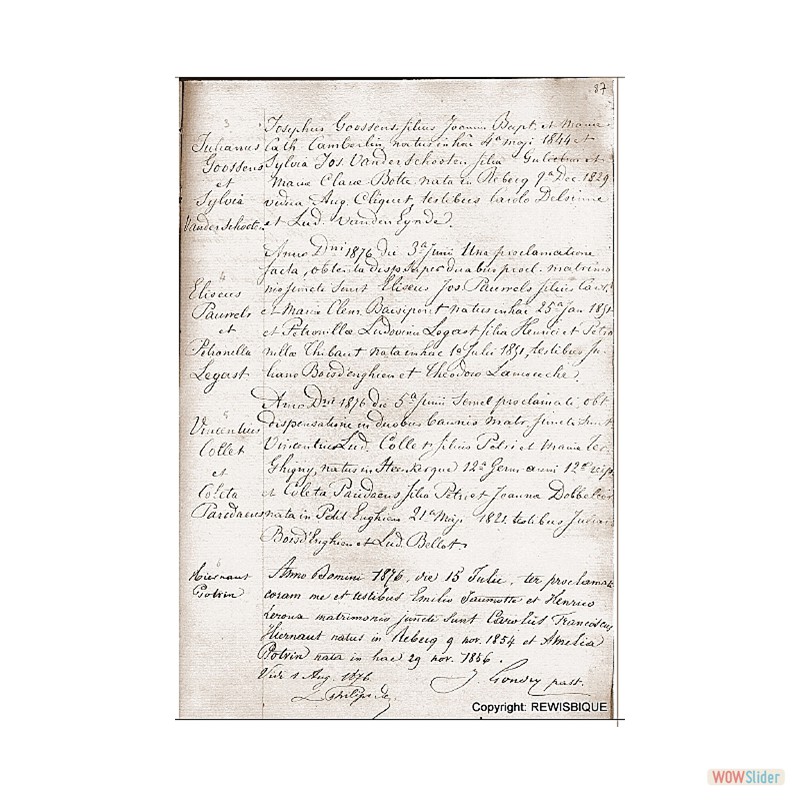 87
3
Julianus
Goossens
et
Sylvia
VanderSchooten
Josephus Goossens filius Joannis Bapt. et Maria
Cath Camberlin, natus in hac 4a maji 1844 et
Sylvia Jos VanderSchooten filia Gulielmi et
Maria Clara Botte nata in Rebecq 9a Dec 1829
vidua Aug. Cliquet, testibus Carolo Delsinne
et Lud. Vanden Eynde.
4
Eliseus
Pauwels
et
Petronella
Legast
Anno Dni 1876 die 3a Junii Una proclamatione
facta, obtenta disp super duabus procl. matrimo
nio juncti sunt Eliseus Jos Pauwels filius
et Maria Clem natus in hac 25a Jan 1851
et Petronilla Ludovica Legast filia Henrici et Petro
nilla Thibaut nata in hac 10 Julii 1851, testibus Ju
liano Boisd'enghien et Theodoro Lamouche.
5
Vincentius
Collet
et
Coleta
Paridaens
Anno Dni 1876 die 5a Junii Semel proclamati, obt
dispensatione in duobus bannis matr. juncti sunt
Vincentius Lud. Collet filius Petri et Maria Ter
Ghigny, natus in Steenkerque 12a Germ anni 12a reip
et Coleta Paridaens filia Petri et Joanna Dobbeleer
nata in Petit Enghien 21a Maji 1821. testibus
Boisd'Enghien et Lud. Bellot.
Hiernaut
Potvin
Anno Domini 1876, die 15 Julii, ter proclamat
coram me et testibus Emilio Jaumotte et Henrico
Leroux matrimonio juncti sunt Carolus Franciscus
Hiernaut natus in Rebecq 9 nov. 1854 et Amelia
Potvin nata in hac 29 nov. 1856.
Vidi 1 Aug. 1876
J. Gondry past.
Copyright: REWISBIQUE
WOWSlider